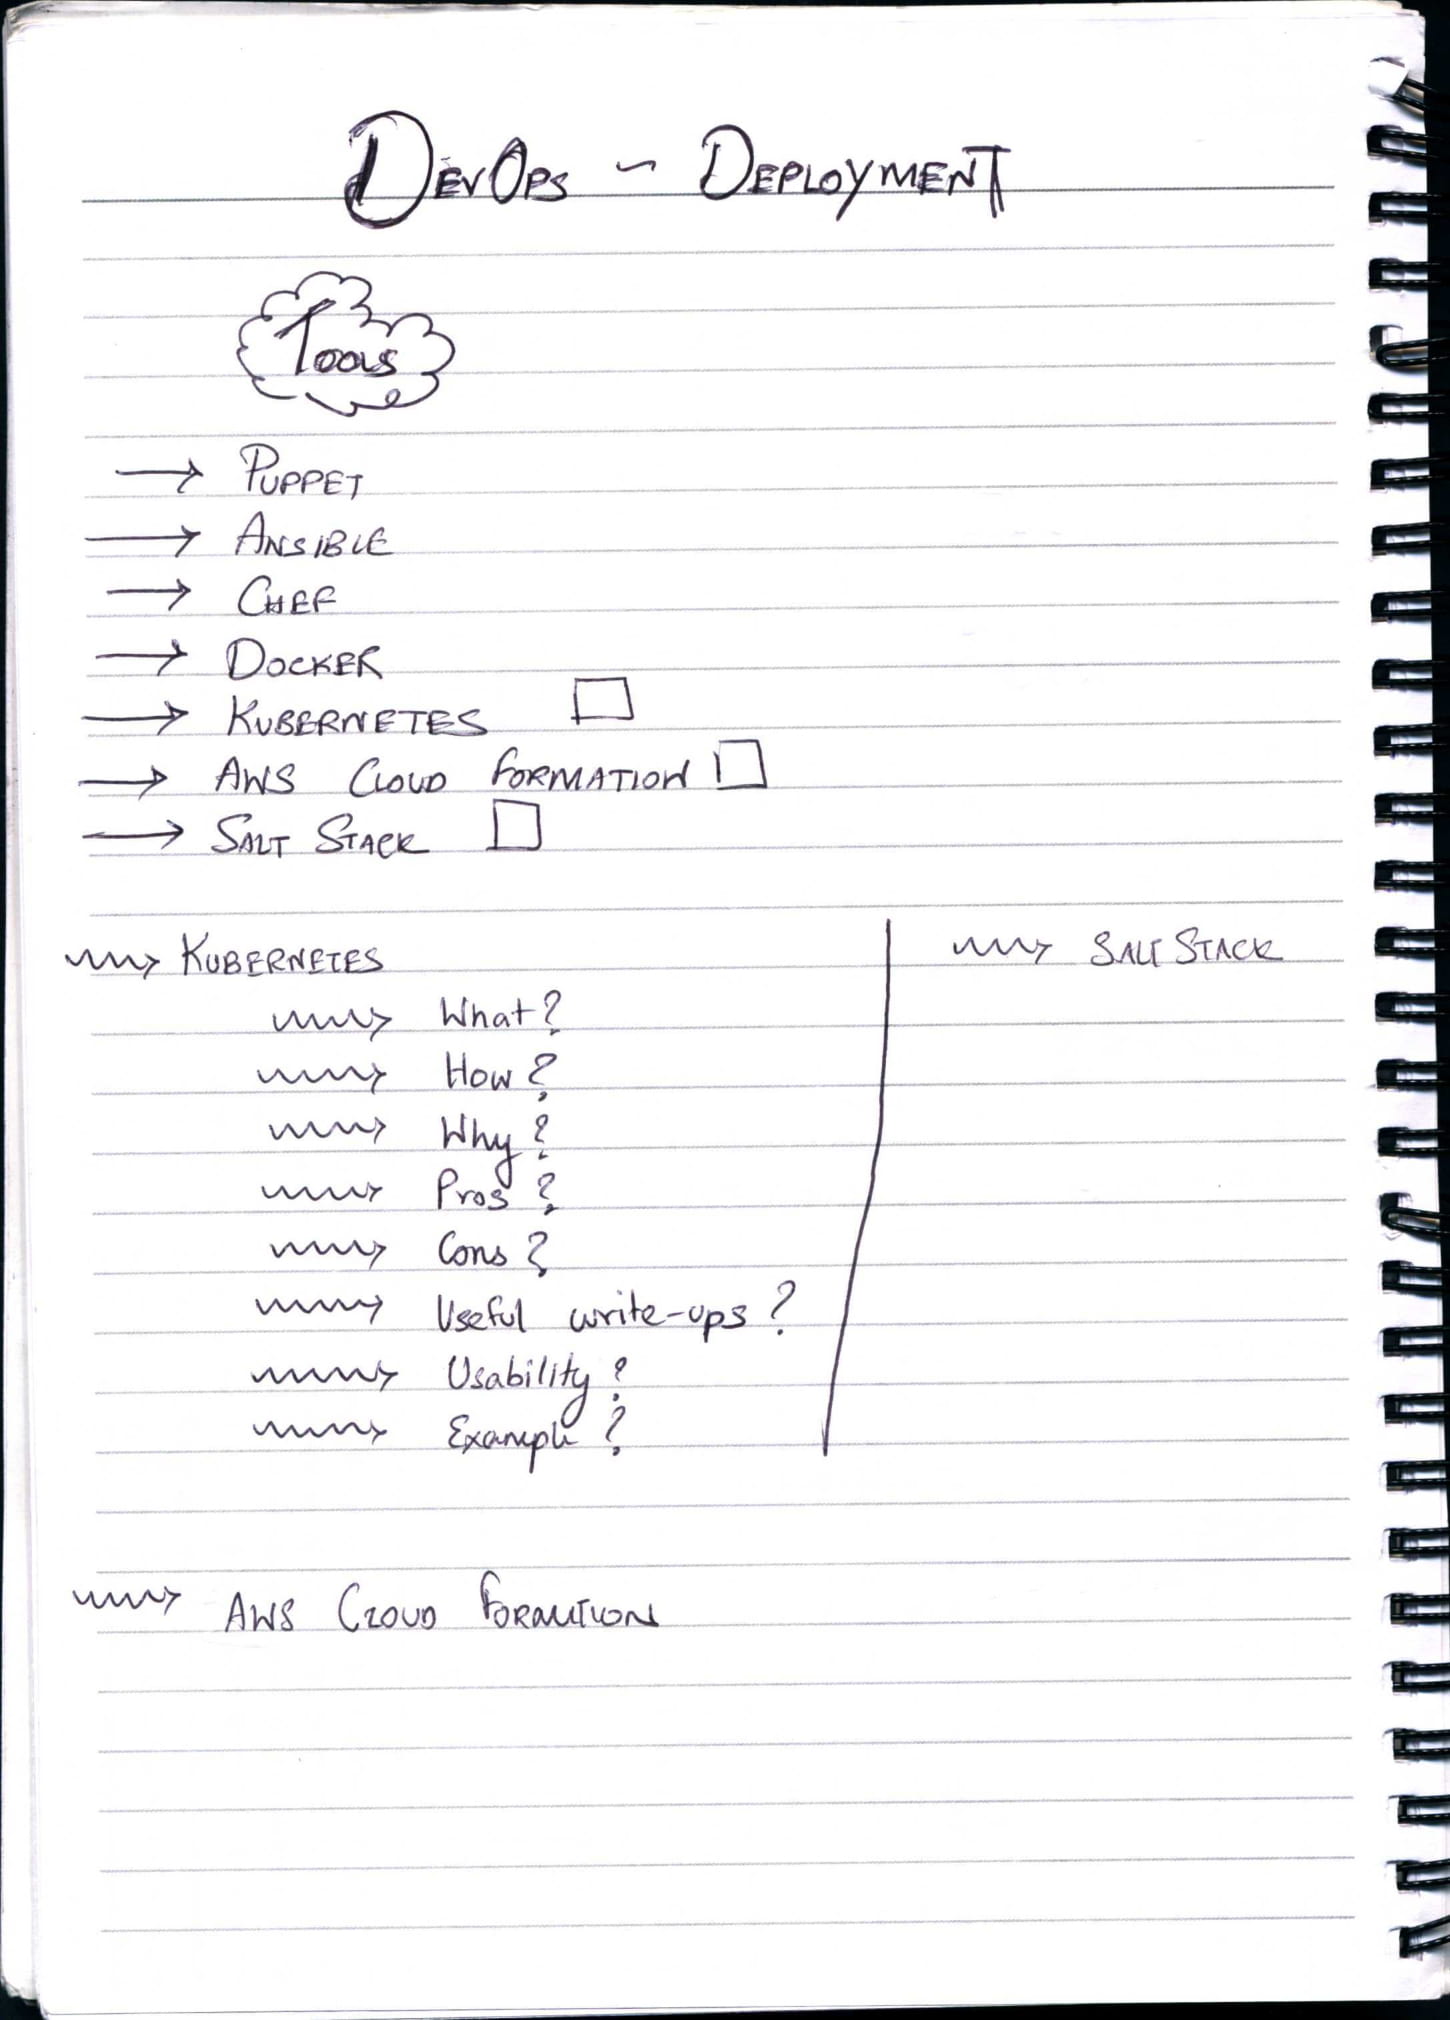 DevOps - Deployment
Tools
→ Puppet
→ Ansible
→ Chef
→ Docker
→ Kubernetes □
→ AWS Cloud Formation □
→ Salt Stack □
Kubernetes
What?
How?
Why?
Pros?
Cons?
Useful write-ups?
Usability?
Example?
Salt Stack
AWS Cloud Formation